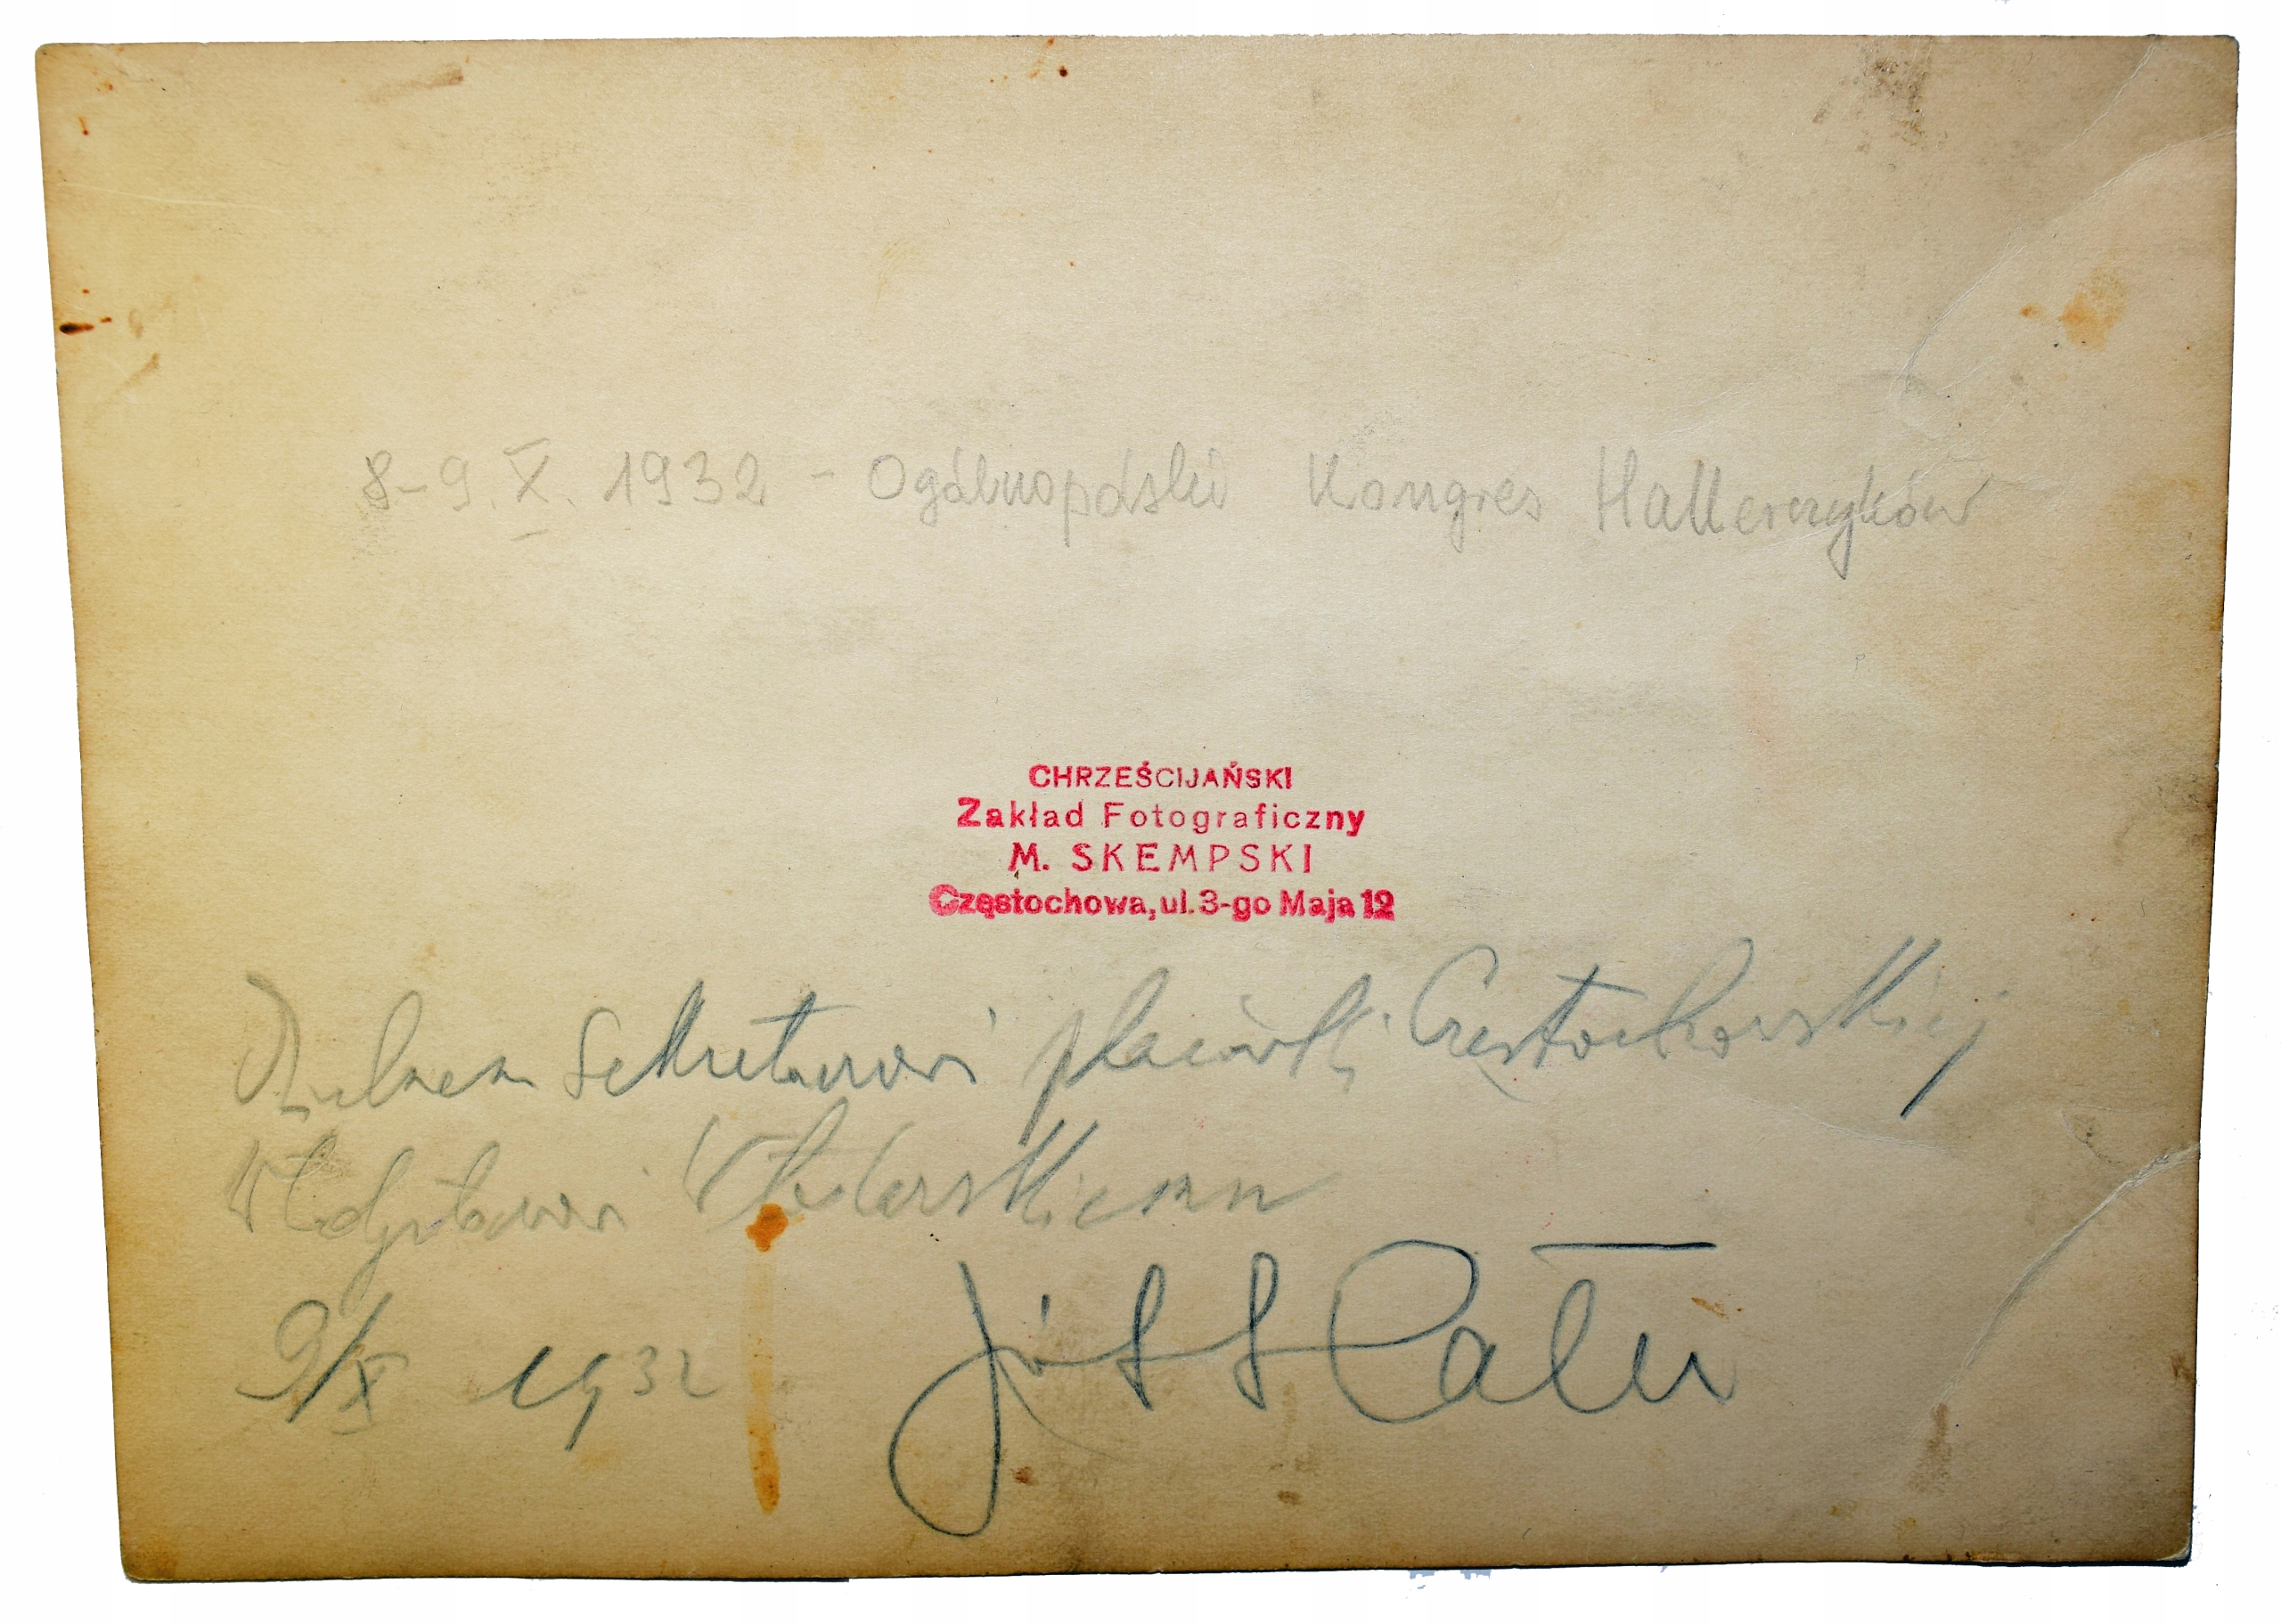 8-9.X.1932 - Ogólnopolski Kongres Hallerczyków
CHRZEŚCIJAŃSKI
Zakład Fotograficzny
M. SKEMPSKI
Częstochowa, ul. 3-go Maja 12
Dzielnem Sekretarzowi placówki Częstochowskiej
Władysławowi Włodarskiemu
9/X 1932 Józef Haller